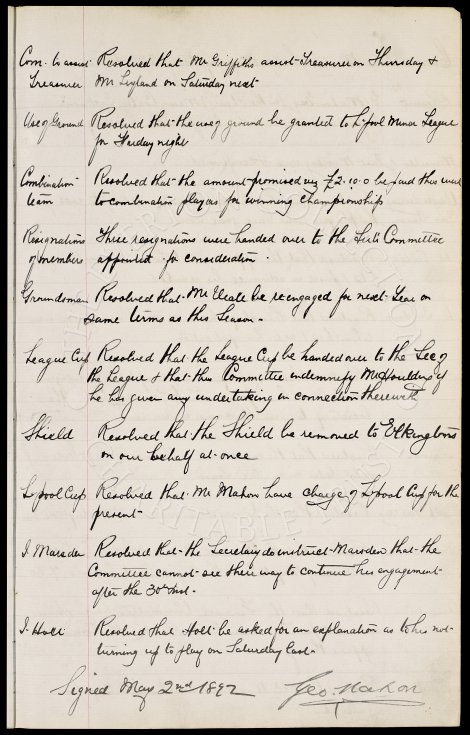 Com. to assist Resolved that Mr Griffiths assist Treasurer on Thursday &
Treasurer Mr Leyland on Saturday next
Use of Ground Resolved that the use of ground be granted to L'pool Minor League
for night
Combination Resolved that the amount promised viz £2.10.0 be paid this week
team to combination players for winning championship
Resignations Three resignations were handed over to the Sub Committee
of members appointed for consideration.
Groundsman Resolved that Mr be re-engaged for next Year on
same terms as this Season.
League Cup Resolved that the League Cup be handed over to the Sec of
the League & that this Committee indemnify Mr Houlding if
he has given any undertaking in connection therewith
Shield Resolved that the Shield be removed to Elkingtons
on our behalf at once
L'pool Cup Resolved that Mr Mahon have charge of L'pool Cup for the
present
J. Marsden Resolved that the Secretary do instruct Marsden that the
Committee cannot see their way to continue his engagement
after the 30th Inst.
J. Holt Resolved that Holt be asked for an explanation as to his not
turning up to play on Saturday last.
Signed May 2nd 1892 Geo. Mahon